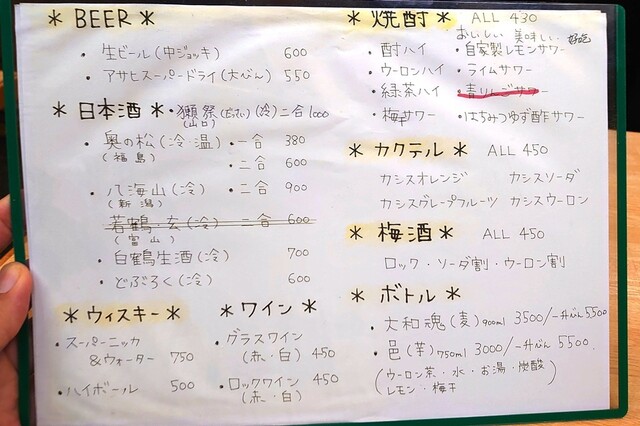 * BEER *
・生ビール(中ジョッキ) 600
・アサヒスーパードライ(大びん) 550
* 日本酒 * ・獺祭(だっさい)(冷)二合 1,000
(山口)
・奥の松(冷、温)・一合 380
(福島)
・二合 600
・八海山(冷) ・二合 900
(新潟)
若鶴・玄(冷) 二合 600
(富山)
・白鶴生酒(冷) 700
・どぶろく(冷) 600
* ウィスキー *
・スーパーニッカ
&ウォーター 750
・ハイボール 500
* ワイン *
・グラスワイン
(赤、白) 450
・ロックワイン 450
(赤、白)
* 焼酎 * ALL 430
おいしい 美味しい 好吃
・酎ハイ ・自家製レモンサワー
・ウーロンハイ ・ライムサワー
・緑茶ハイ ・青りんごサワー
・梅サワー ・はちみつゆず酢サワー
* カクテル * ALL 450
カシスオレンジ カシスソーダ
カシスグレープフルーツ カシスウーロン
* 梅酒 * ALL 450
ロック・ソーダ割・ウーロン割
* ボトル *
・大和魂(麦)900ml 3500/一升びん 5500
・邑(芋)750ml 3000/一升びん 5500
(ウーロン茶・水・お湯・炭酸
レモン・梅干)